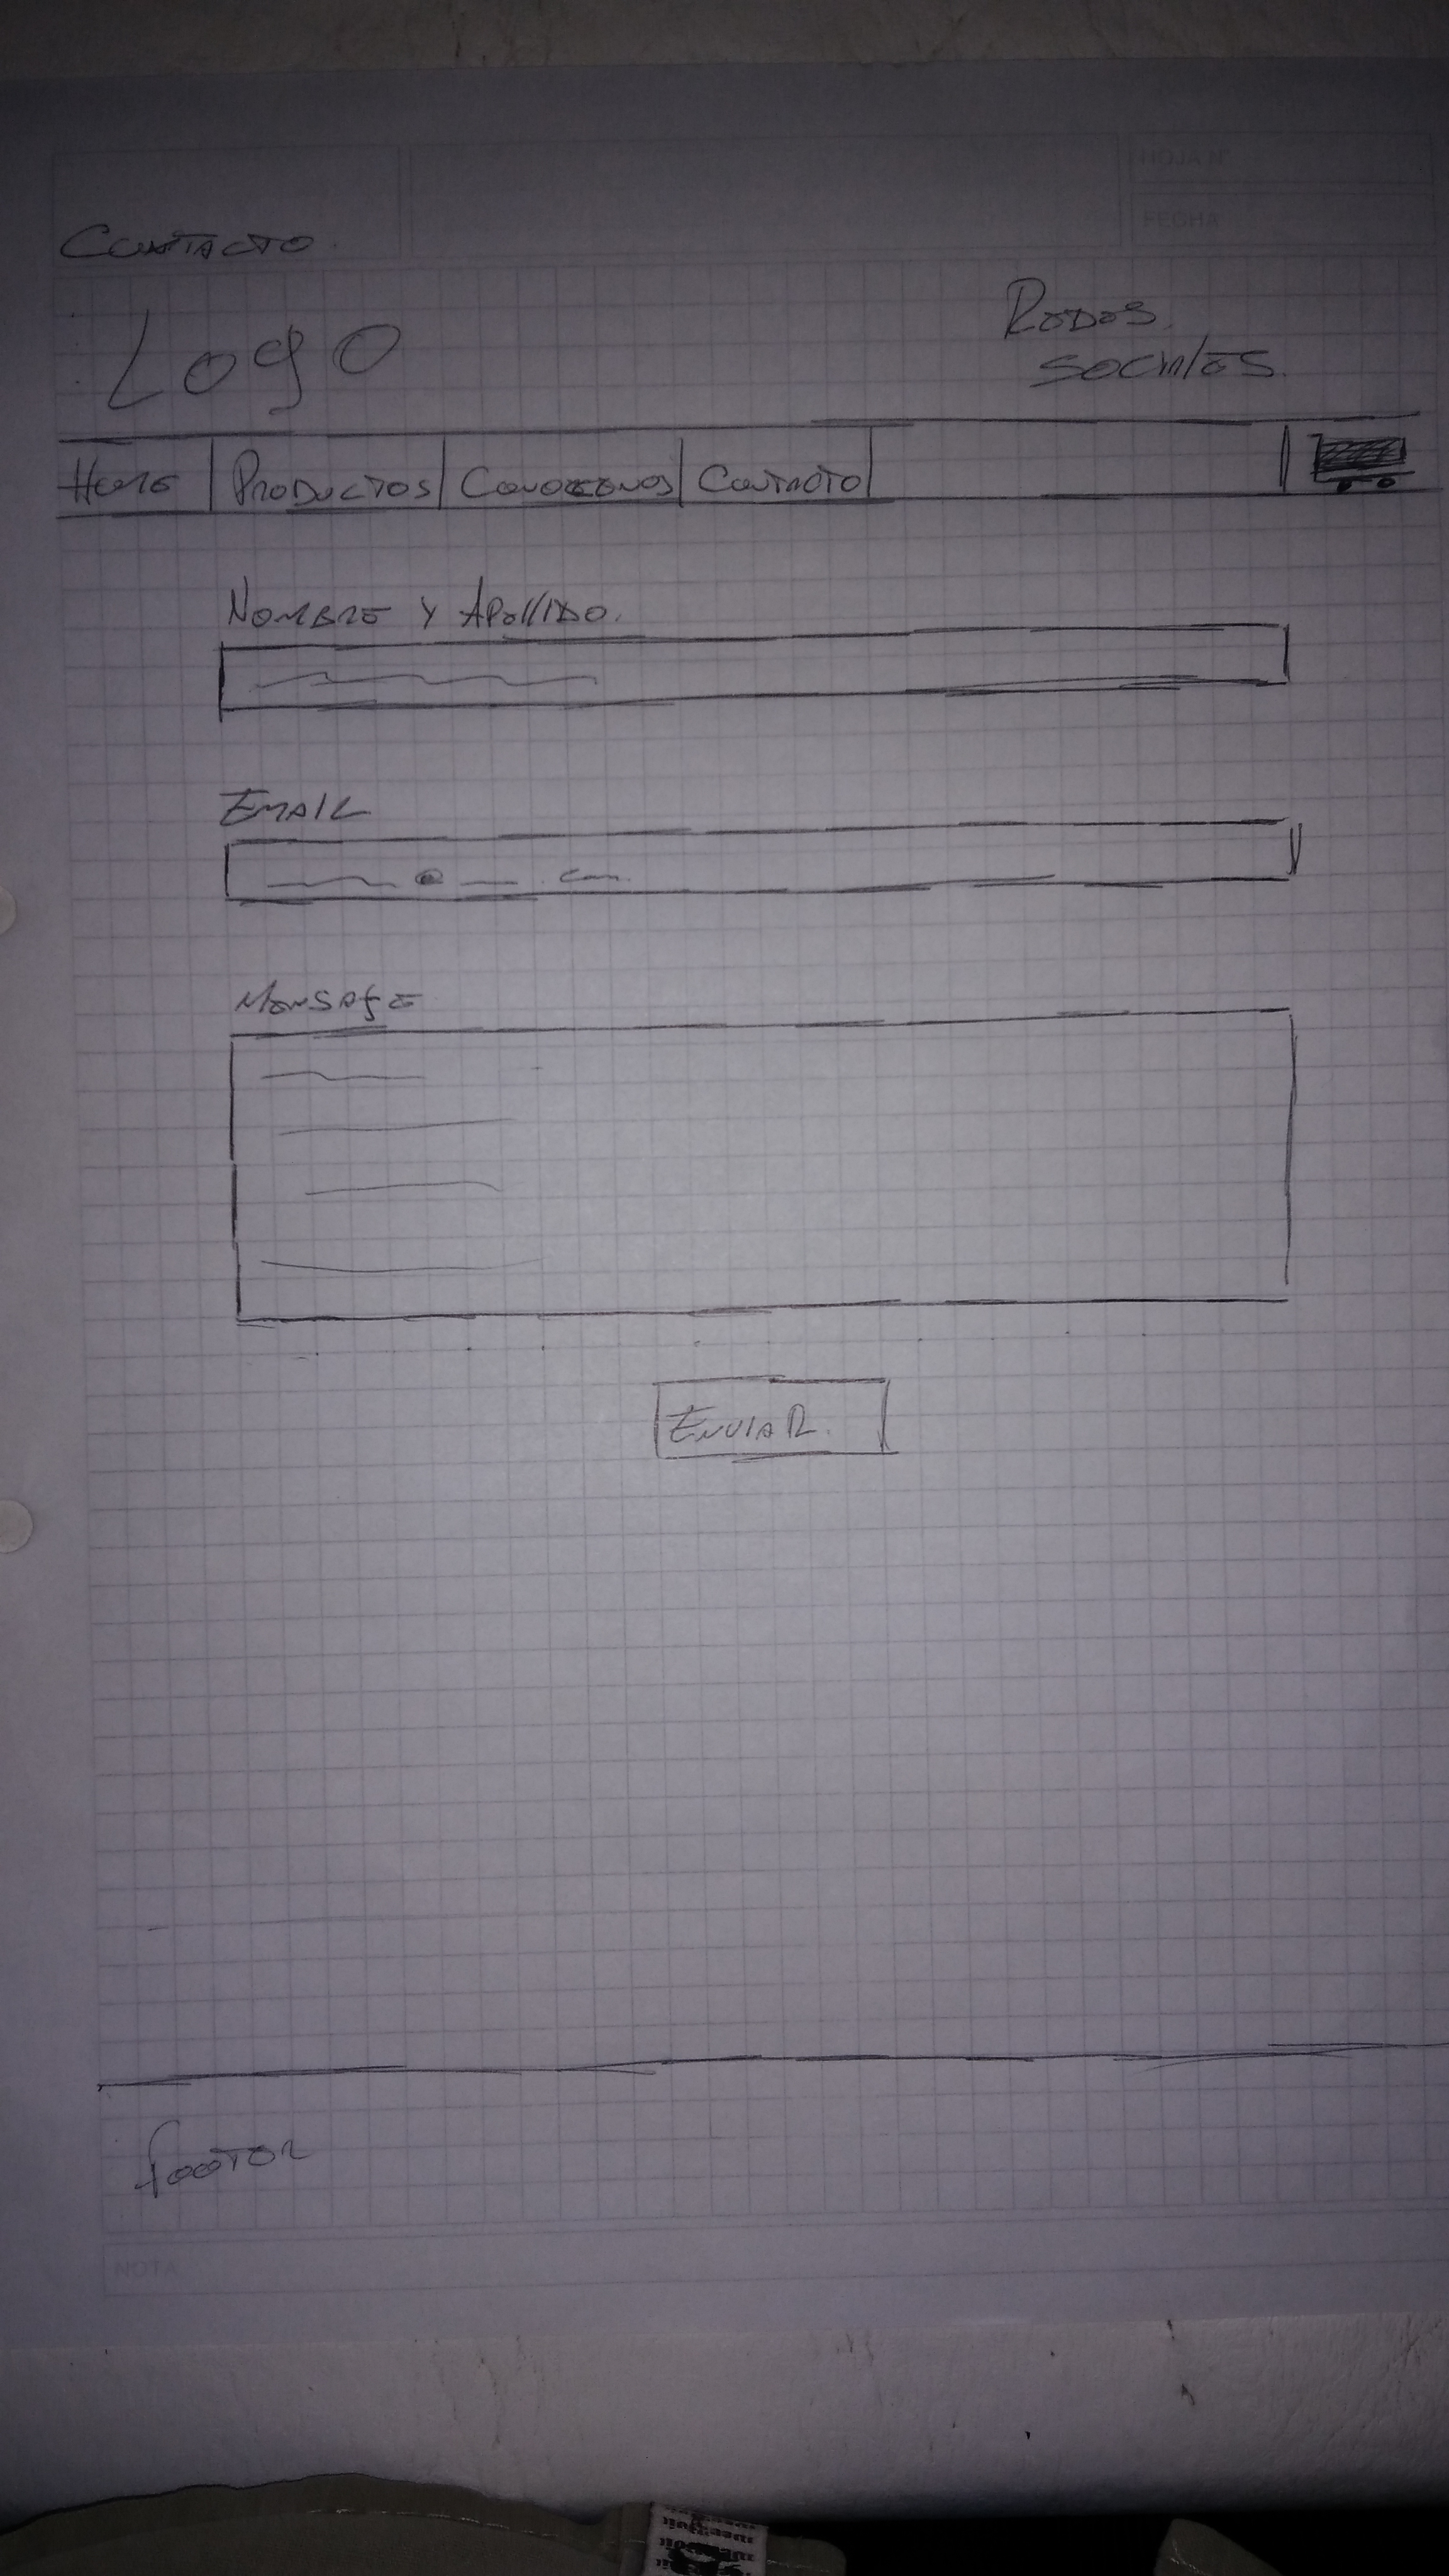 HOJA N°
FECHA
CONTACTO.
Logo
REDES
SOCIALES.
HOME PRODUCTOS CONOCENOS CONTACTO
NOMBRE Y APELLIDO.
EMAIL
@ . com.
MENSAJE
ENVIAR.
footer
NOTA